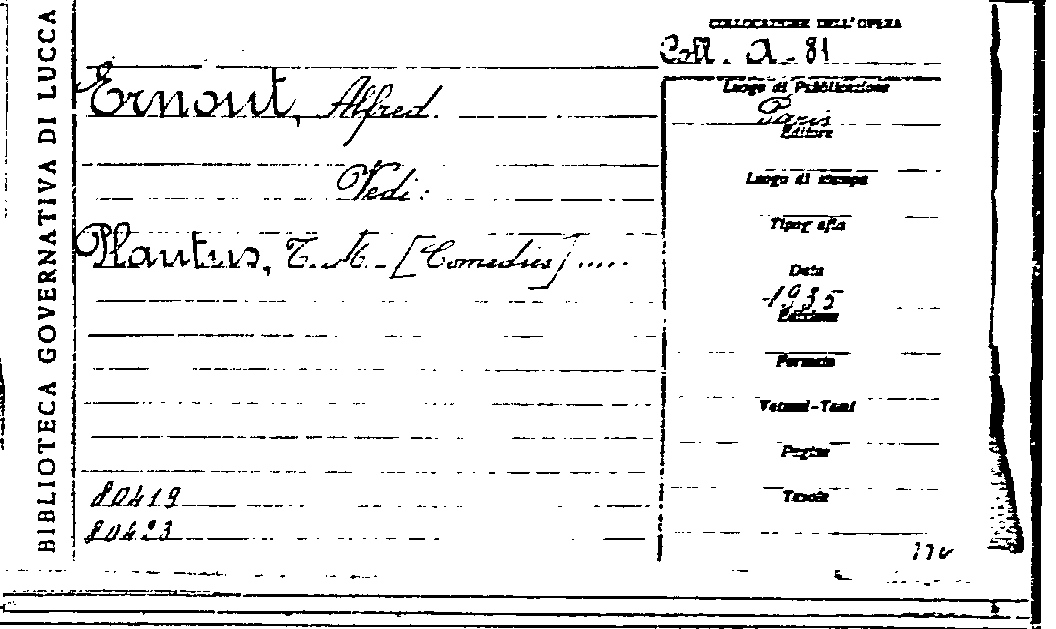 BIBLIOTECA GOVERNATIVA DI LUCCA
COLLOCAZIONE DELL'OPERA
Coll. A-81
Ernout, Alfred.
Vedi:
Plautus, T. M. [Comedies].....
80419
80423
Luogo di Pubblicazione
Paris
Editore
Luogo di stampa
Tipografia
Data
1935
Edizione
Formato
Volumi-Tomi
Pagine
Tavole